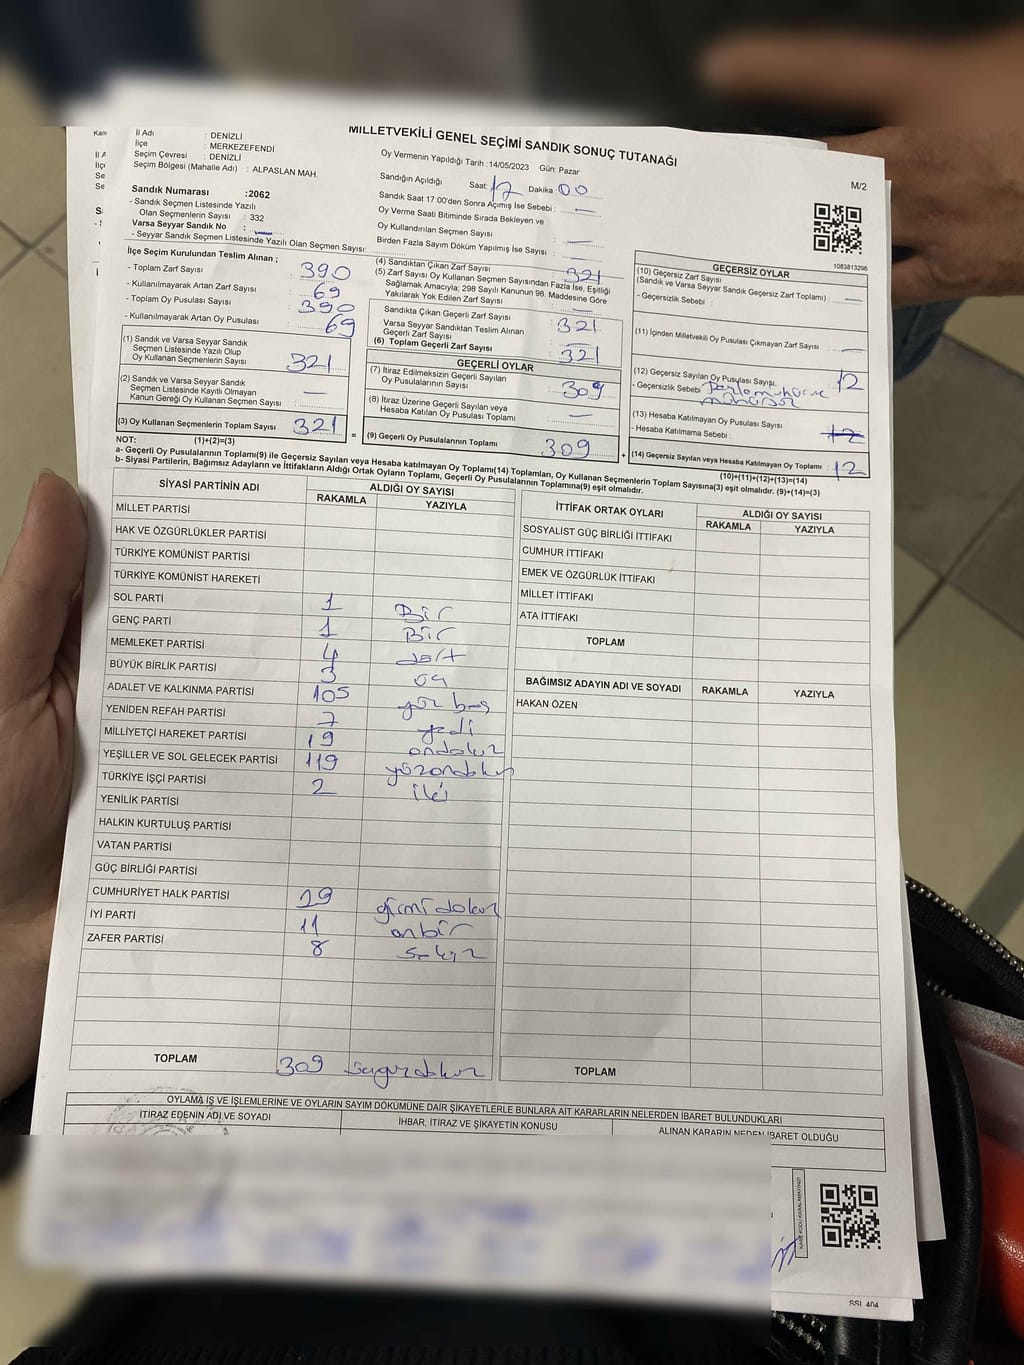 MİLLETVEKİLİ GENEL SEÇİMİ SANDIK SONUÇ TUTANAĞI
M/2
İl Adı : DENİZLİ
İlçe : MERKEZEFENDİ
Seçim Çevresi : DENİZLİ
Seçim Bölgesi (Mahalle Adı) : ALPASLAN MAH.
Sandık Numarası :2062
- Sandık Seçmen Listesinde Yazılı
Olan Seçmenlerin Sayısı : 332
Varsa Seyyar Sandık No : —
- Seyyar Sandık Seçmen Listesinde Yazılı Olan Seçmen Sayısı:
Oy Vermenin Yapıldığı Tarih :14/05/2023 Gün: Pazar
Sandığın Açıldığı Saat: 17 Dakika 00
Sandık Saat 17:00'den Sonra Açımış İse Sebebi : —
Oy Verme Saati Bitiminde Sırada Bekleyen ve
Oy Kullandırılan Seçmen Sayısı : —
Birden Fazla Sayım Döküm Yapılmış İse Sayısı : —
1083813296
İlçe Seçim Kurulundan Teslim Alınan ;
- Toplam Zarf Sayısı : 390
- Kullanılmayarak Artan Zarf Sayısı : 69
- Toplam Oy Pusulası Sayısı : 390
- Kullanılmayarak Artan Oy Pusulası : 69
(1) Sandık ve Varsa Seyyar Sandık
Seçmen Listesinde Yazılı Olup
Oy Kullanan Seçmenlerin Sayısı : 321
(2) Sandık ve Varsa Seyyar Sandık
Seçmen Listesinde Kayıtlı Olmayan
Kanun Gereği Oy Kullanan Seçmen Sayısı : —
(3) Oy Kullanan Seçmenlerin Toplam Sayısı : 321
(4) Sandıktan Çıkan Zarf Sayısı : 321
(5) Zarf Sayısı Oy Kullanan Seçmen Sayısından Fazla İse, Eşitliği
Sağlamak Amacıyla; 298 Sayılı Kanunun 98. Maddesine Göre
Yakılarak Yok Edilen Zarf Sayısı : —
Sandıkta Çıkan Geçerli Zarf Sayısı : 321
Varsa Seyyar Sandıktan Teslim Alınan
Geçerli Zarf Sayısı : —
(6) Toplam Geçerli Zarf Sayısı : 321
GEÇERLİ OYLAR
(7) İtiraz Edilmeksizin Geçerli Sayılan
Oy Pusulalarının Sayısı : 309
(8) İtiraz Üzerine Geçerli Sayılan veya
Hesaba Katılan Oy Pusulası Toplamı : —
= (9) Geçerli Oy Pusulalarının Toplamı : 309
GEÇERSİZ OYLAR
(10) Geçersiz Zarf Sayısı
(Sandık ve Varsa Seyyar Sandık Geçersiz Zarf Toplamı) : —
- Geçersizlik Sebebi :
(11) İçinden Milletvekili Oy Pusulası Çıkmayan Zarf Sayısı : —
(12) Geçersiz Sayılan Oy Pusulası Sayısı : 12
- Geçersizlik Sebebi :
(13) Hesaba Katılmayan Oy Pusulası Sayısı : 12
- Hesaba Katılmama Sebebi :
+ (14) Geçersiz Sayılan veya Hesaba Katılmayan Oy Toplamı : 12
NOT: (1)+(2)=(3)
(10)+(11)+(12)+(13)=(14)
a- Geçerli Oy Pusulalarının Toplamı(9) ile Geçersiz Sayılan veya Hesaba katılmayan Oy Toplamı(14) Toplamları, Oy Kullanan Seçmenlerin Toplam Sayısına(3) eşit olmalıdır. (9)+(14)=(3)
b- Siyasi Partilerin, Bağımsız Adayların ve İttifakların Aldığı Ortak Oyların Toplamı, Geçerli Oy Pusulalarının Toplamına(9) eşit olmalıdır.
SİYASİ PARTİNİN ADI ALDIĞI OY SAYISI
RAKAMLA YAZIYLA
MİLLET PARTİSİ
HAK VE ÖZGÜRLÜKLER PARTİSİ
TÜRKİYE KOMÜNİST PARTİSİ
TÜRKİYE KOMÜNİST HAREKETİ
SOL PARTİ 1 Bir
GENÇ PARTİ 1 Bir
MEMLEKET PARTİSİ 4 dört
BÜYÜK BİRLİK PARTİSİ 3 üç
ADALET VE KALKINMA PARTİSİ 105 yüz beş
YENİDEN REFAH PARTİSİ 7 yedi
MİLLİYETÇİ HAREKET PARTİSİ 19 ondokuz
YEŞİLLER VE SOL GELECEK PARTİSİ 119 yüzondokuz
TÜRKİYE İŞÇİ PARTİSİ 2 iki
YENİLİK PARTİSİ
HALKIN KURTULUŞ PARTİSİ
VATAN PARTİSİ
GÜÇ BİRLİĞİ PARTİSİ
CUMHURİYET HALK PARTİSİ 29 yirmidokuz
İYİ PARTİ 11 onbir
ZAFER PARTİSİ 8 sekiz
TOPLAM 309
İTTİFAK ORTAK OYLARI ALDIĞI OY SAYISI
RAKAMLA YAZIYLA
SOSYALİST GÜÇ BİRLİĞİ İTTİFAKI
CUMHUR İTTİFAKI
EMEK VE ÖZGÜRLÜK İTTİFAKI
MİLLET İTTİFAKI
ATA İTTİFAKI
TOPLAM
BAĞIMSIZ ADAYIN ADI VE SOYADI RAKAMLA YAZIYLA
HAKAN ÖZEN
TOPLAM
OYLAMA İŞ VE İŞLEMLERİNE VE OYLARIN SAYIM DÖKÜMÜNE DAİR ŞİKAYETLERLE BUNLARA AİT KARARLARIN NELERDEN İBARET BULUNDUKLARI
İTİRAZ EDENİN ADI VE SOYADI İHBAR, İTİRAZ VE ŞİKAYETİN KONUSU ALINAN KARARIN NEDEN İBARET OLDUĞU